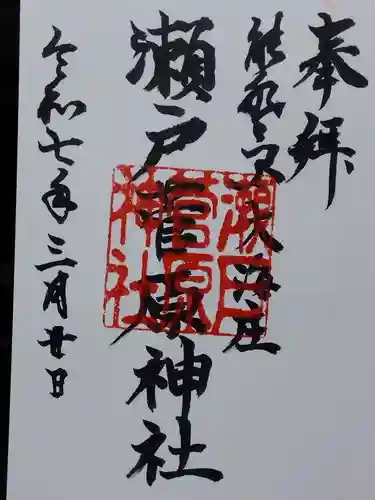 奉拝
瀬戸菅原神社
瀬戸
菅原
神社
令和七年三月廿日